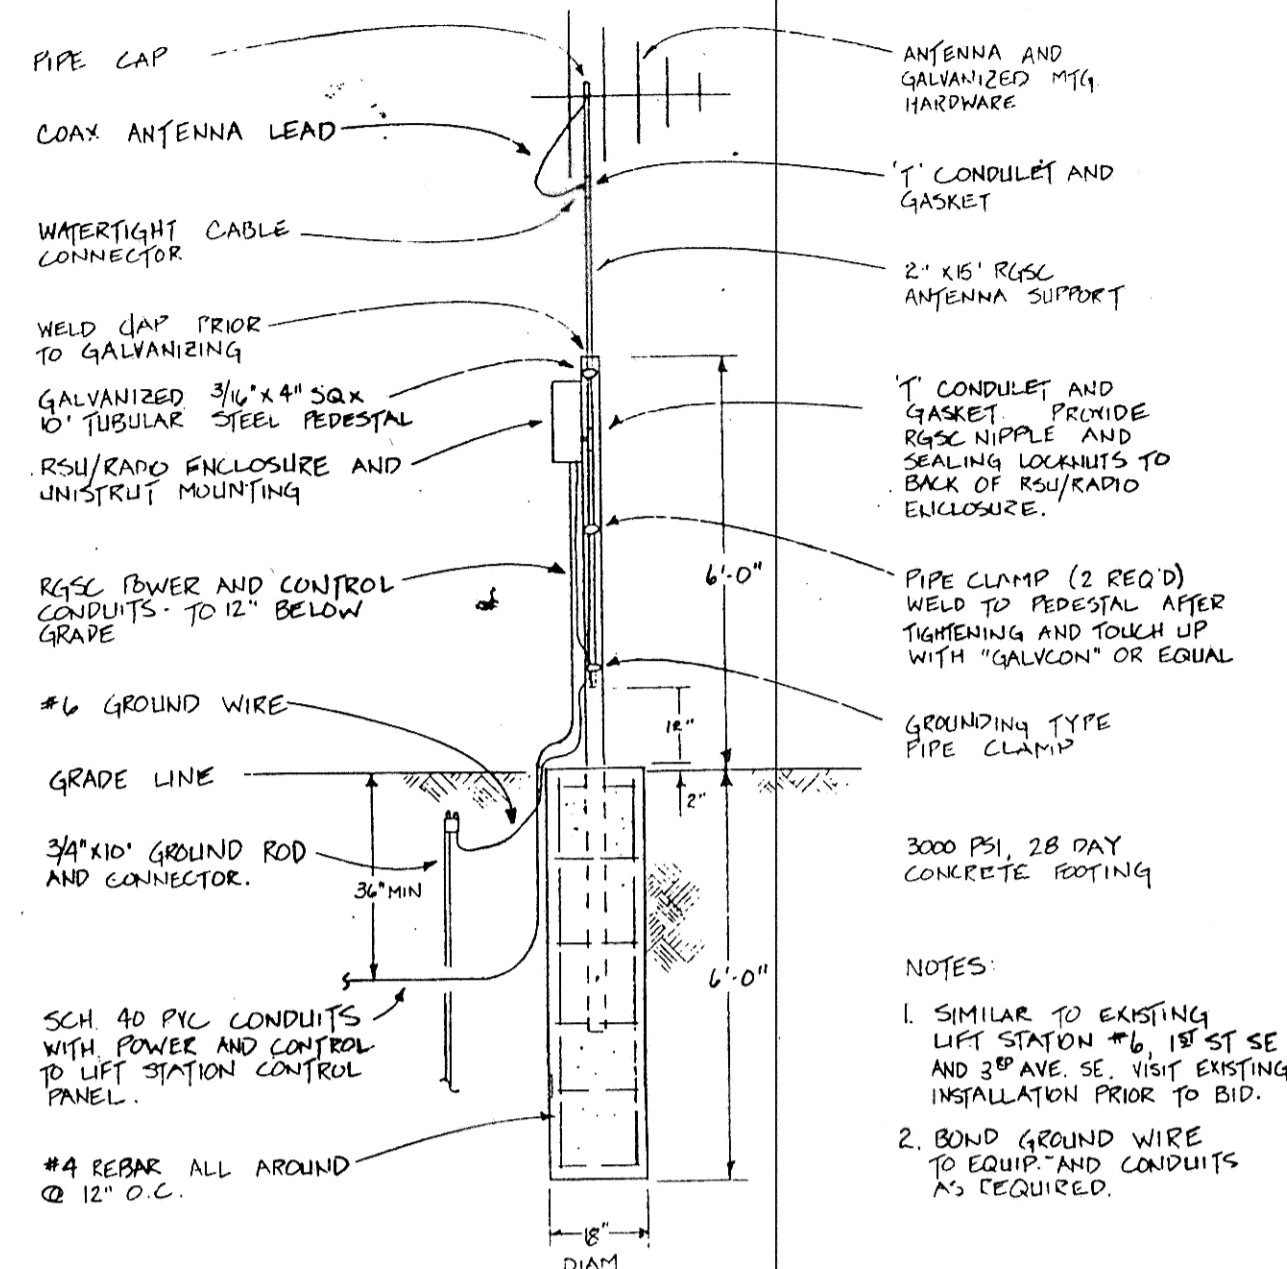 PIPE CAP
COAX ANTENNA LEAD
WATERTIGHT CABLE
CONNECTOR
WELD CAP PRIOR
TO GALVANIZING
GALVANIZED 3/16" X 4" SQ X
10' TUBULAR STEEL PEDESTAL
RSU/RADIO ENCLOSURE AND
UNISTRUT MOUNTING
RGSC POWER AND CONTROL
CONDUITS - TO 12" BELOW
GRADE
#6 GROUND WIRE
GRADE LINE
3/4"X10' GROUND ROD
AND CONNECTOR.
36" MIN
SCH. 40 PVC CONDUITS
WITH POWER AND CONTROL
TO LIFT STATION CONTROL
PANEL.
#4 REBAR ALL AROUND
@ 12" O.C.
6'-0"
12"
2"
6'-0"
18"
DIAM
ANTENNA AND
GALVANIZED MTG.
HARDWARE
'T' CONDULET AND
GASKET
2" X15' RGSC
ANTENNA SUPPORT
'T' CONDULET AND
GASKET. PROVIDE
RGSC NIPPLE AND
SEALING LOCKNUTS TO
BACK OF RSU/RADIO
ENCLOSURE.
PIPE CLAMP (2 REQ'D)
WELD TO PEDESTAL AFTER
TIGHTENING AND TOUCH UP
WITH "GALVCON" OR EQUAL
GROUNDING TYPE
PIPE CLAMP
3000 PSI, 28 DAY
CONCRETE FOOTING
NOTES:
1. SIMILAR TO EXISTING
LIFT STATION #6, 1ST ST SE
AND 3RD AVE. SE. VISIT EXISTING
INSTALLATION PRIOR TO BID.
2. BOND GROUND WIRE
TO EQUIP. AND CONDUITS
AS REQUIRED.